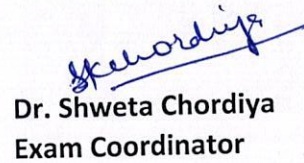 SKchordiya
Dr. Shweta Chordiya
Exam Coordinator